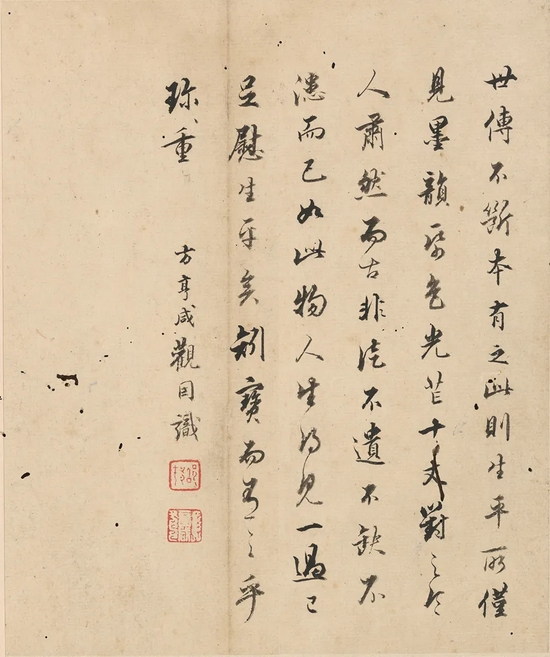 世傳不斷本有之此則生平所僅
見墨韻紙色光芒十丈對之令
人肅然而古非徒不遺不缺不
漶而已如此物人生得見一過已
足慰生平矣矧寶而有之乎
珍〻重
方亨咸觀因識